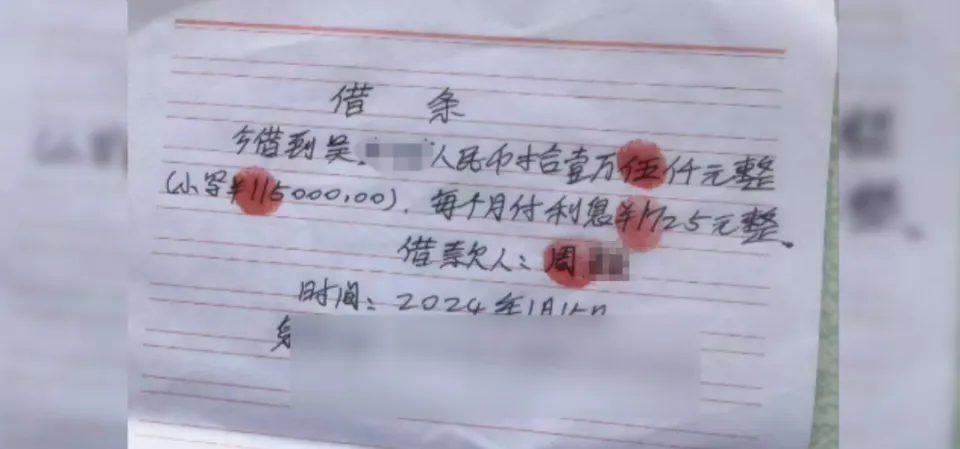 借条
今借到吴 人民币拾壹万伍仟元整
(小写¥115000.00). 每个月付利息¥1725元整.
借款人:周
时间:2024年1月15日